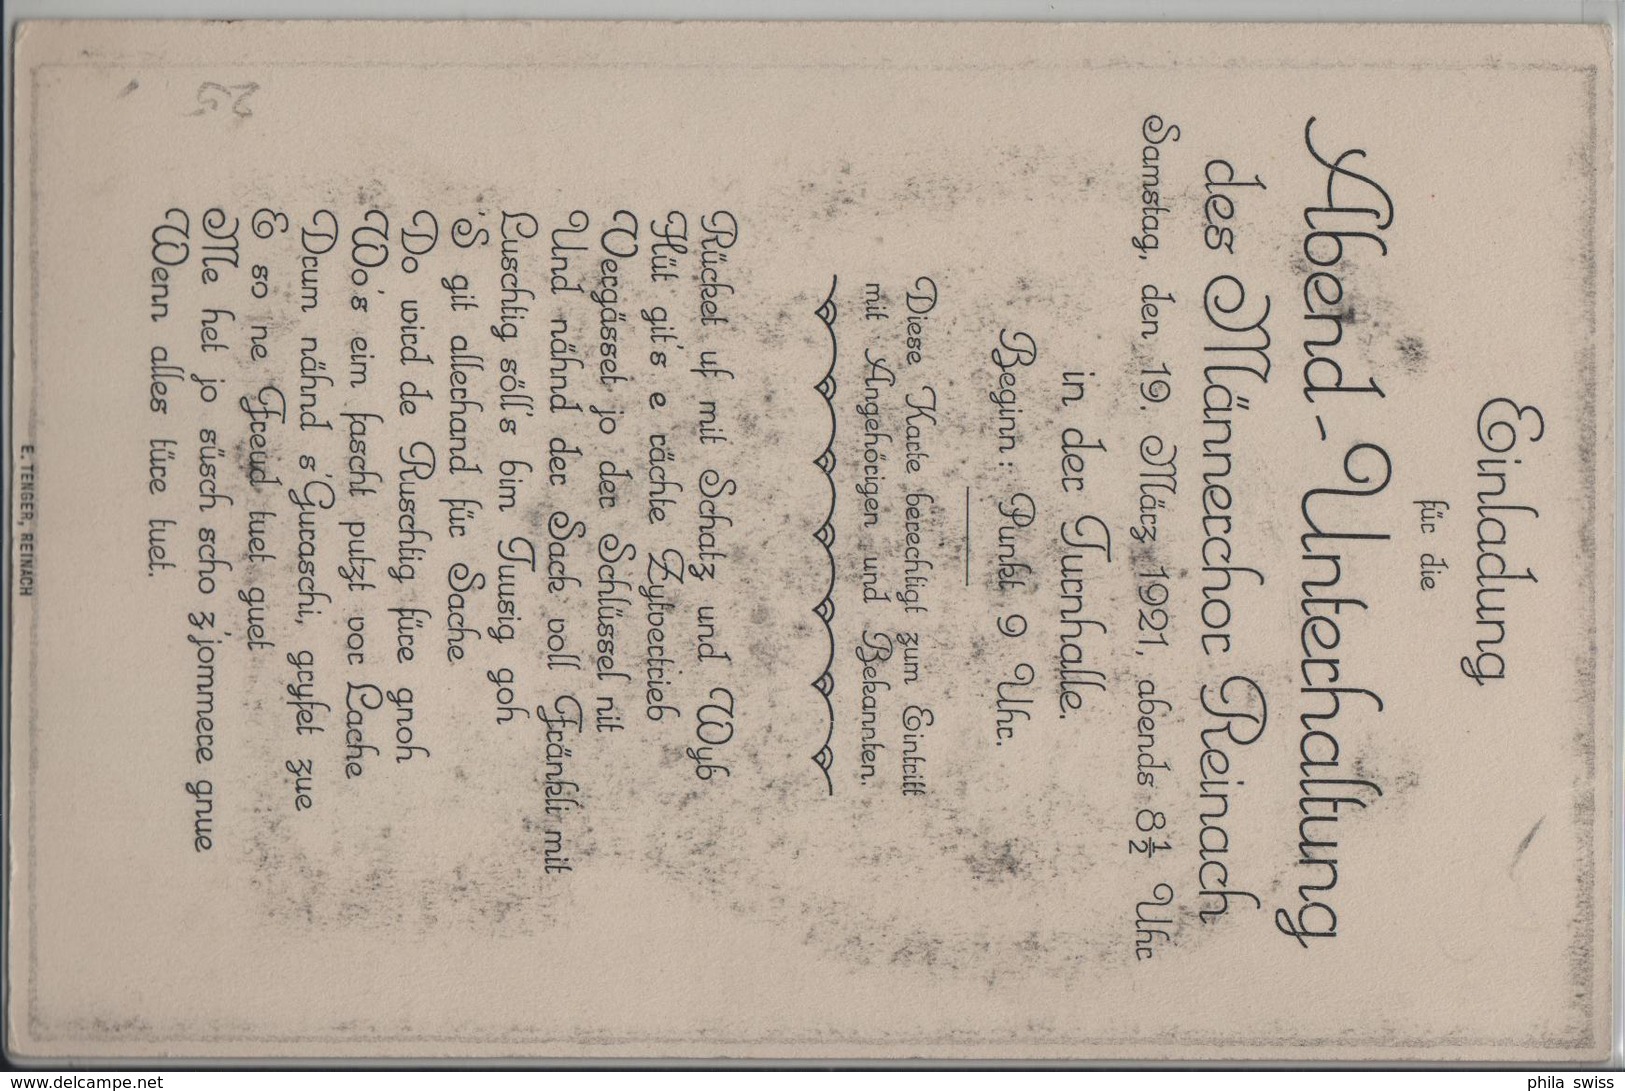 Einladung
für die
Abend-Unterhaltung
des Männerchor Reinach
Samstag, den 19. März 1921, abends 8½ Uhr
in der Turnhalle.
Beginn: Punkt 9 Uhr.
Diese Karte berechtigt zum Eintritt
mit Angehörigen und Bekannten.
Rücket uf mit Schatz und Wyb
Hüt git's e rächte Zytvertrieb
Vergässet jo der Schlüssel nit
Und nähnd der Sack voll Fränkli mit
Luschtig söll's bim Tuusig goh
'S git allerhand für Sache
Do wird de Ruschtig füre gnoh
Wo's eim fascht putzt vor Lache
Drum nähnd s'Guraschi, gryfet zue
E so ne Freud tuet guet
Me het jo süsch scho z'jommere gnue
Wenn alles türe tuet.
E. TENGER, REINACH
25
www.delcampe.net
phila swiss